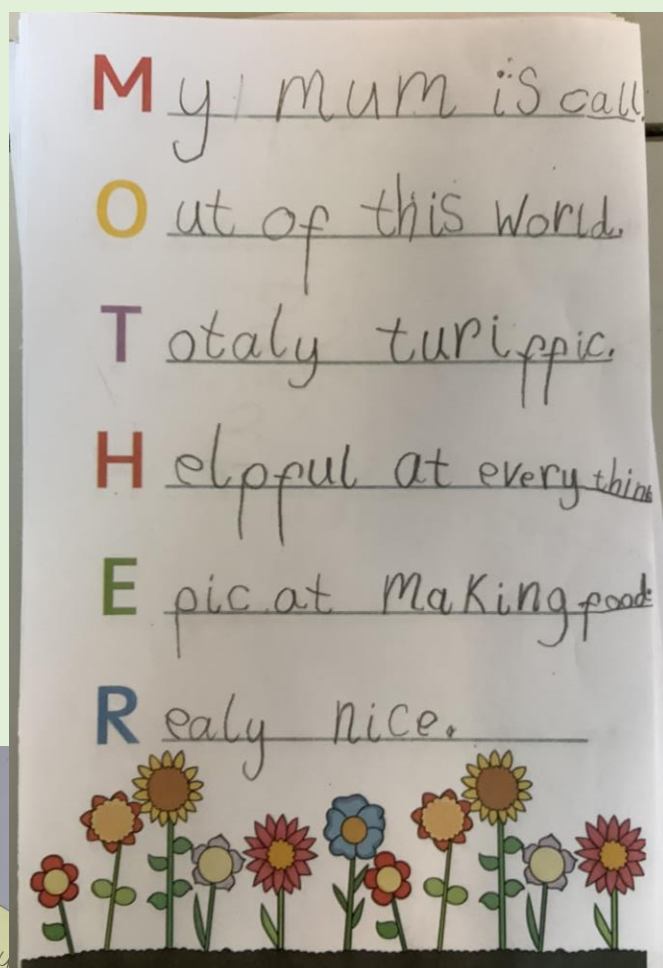 My mum is call.
Out of this World.
Totaly turiffic.
Helpful at every thing
Epic at Making food.
Realy nice.